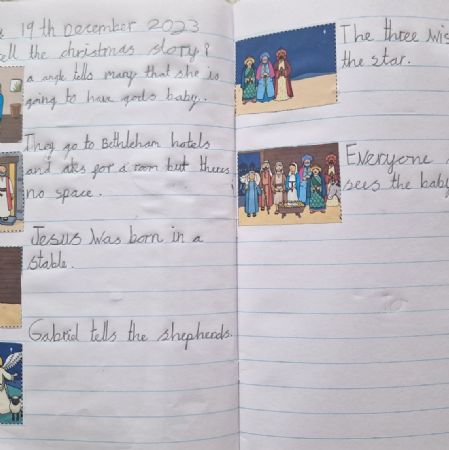 19th December 2023
tell the christmas story?
a angle tells mary that she is
going to have gods baby.
They go to Bethleham hotels
and aks for a rom but theres
no space.
Jesus was born in a
stable.
Gabriel tells the shepherds.
The three
the star.
Everyone
sees the baby